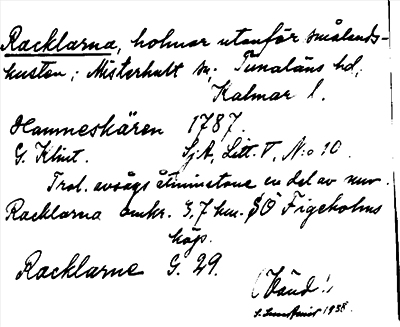 Racklarna, holmar utanför smålands-
kusten; Misterhult sn, Tunaläns hd,
Kalmar l.
Hamneskären 1787.
G. Klint. SjA, Litt. V, N:o 10.
Trol. avsågs åtminstone en del av nuv.
Racklarna omkr. 3,7 km. SÖ Figeholms
köp.
Racklarne G. 29.
(Vänd!)
1938.